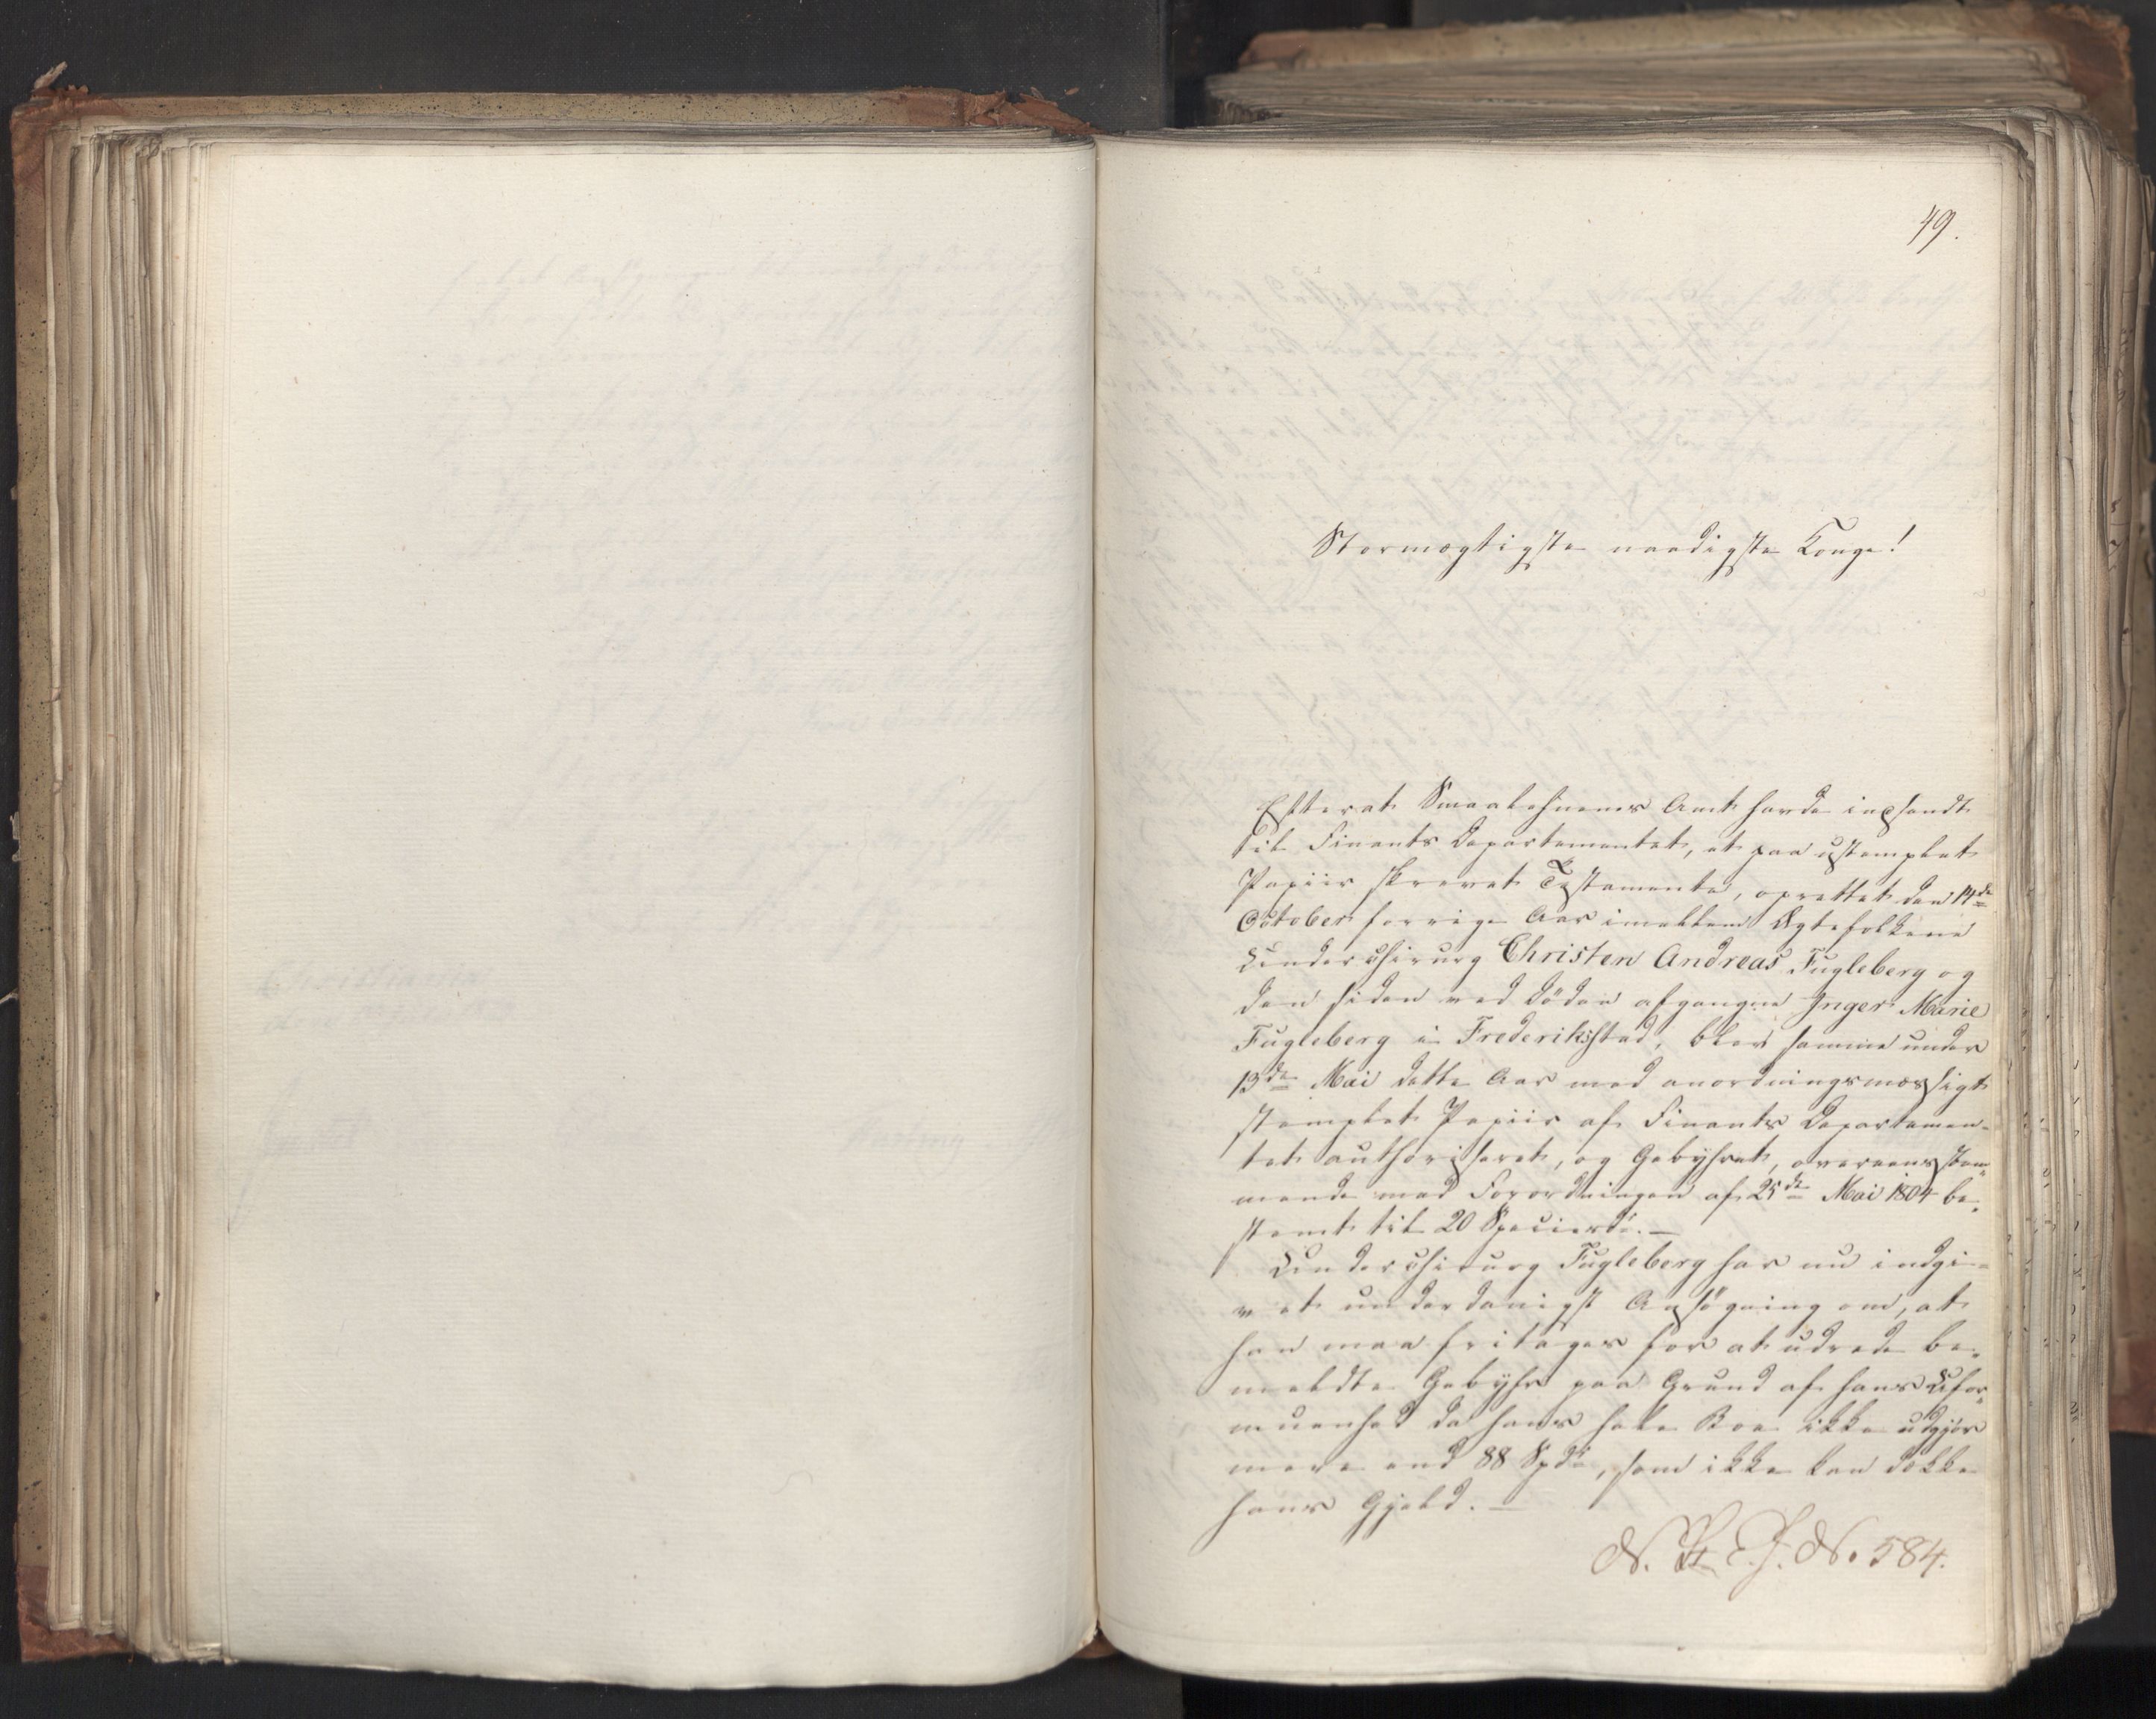 49.
Stormægtigste naadigste Konge!
Efterat Smaalehnenes Amt havde indsendt
til Finants Departementet, et paa ustemplet
Papiir skrevet Testamente, oprettet den 14de
October forrige Aar imellem Ægtefolkene
Underchirurg Christen Andreas Fugleberg og
den siden ved Døden afgangne Inger Marie
Fugleberg i Frederikstad, blev samme under
13de Mai dette Aar med anordningsmæssigt
stemplet Papiir af Finants Departemen-
tet authoriseret, og Gebyhret, overeensstem-
mende med Forordningen af 25de Mai 1804 be-
stemt til 20 Speciesd. —
Underchirurg Fugleberg har nu indgi-
vet underdanigst Ansøgning om, at
han maa fritages for at udrede be-
meldte Gebyhr paa Grund af hans Ufor-
muenhed da hans hele Boe ikke udgjør
mere end 88 Spd, som ikke kan dække
hans Gjeld. —
N. 584.